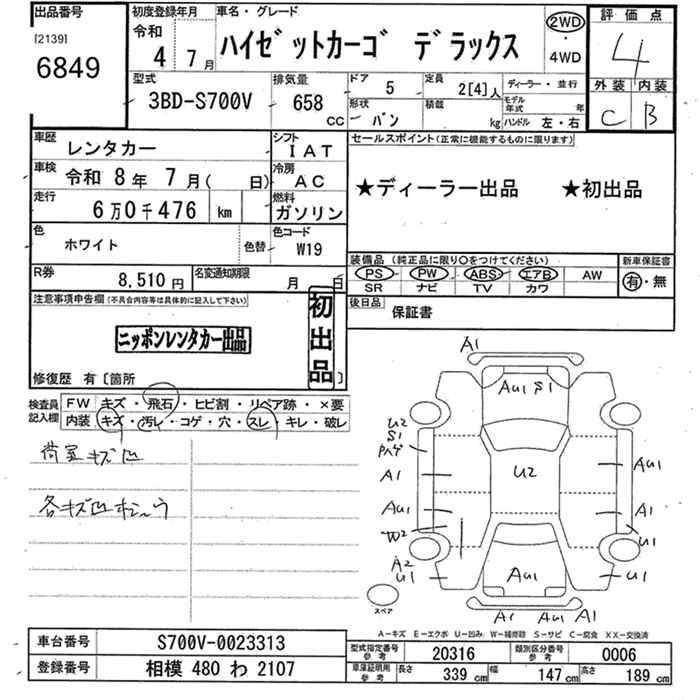 出品番号
[2139]
6849
初度登録年月
令和
4年 7月
車名・グレード
ハイゼットカーゴ デラックス
2WD
・
4WD
評価点
4
外装 内装
C B
型式
3BD-S700V
排気量
658
CC
ドア 5
形状 バン
定員 2[4]人
積載 kg
ディーラー・並行
モデル年式 年
ハンドル 左・右
車歴 レンタカー
シフト IAT
車検 令和 8年 7月( 日)
冷房 AC
走行 6万0千476 km
燃料 ガソリン
色 ホワイト
色替
色コード W19
R券 8,510円
名変通知期限 月 日
セールスポイント(正常に機能するものに限ります)
★ディーラー出品 ★初出品
装備品(純正品に限り○をつけてください)
PS PW ABS エアB AW
SR ナビ TV カワ
新車保証書
有・無
後日品 保証書
注意事項申告欄(不具合内容等は具体的に記入して下さい)
ニッポンレンタカー出品
初出品
修復歴 有〔箇所 〕
検査員記入欄
FW キズ・飛石・ヒビ割・リペア跡・×要
内装 キズ・汚レ・コゲ・穴・スレ・キレ・破レ
荷室キズ凹
各キズ凹
A1
AU1 S1
U2
S1
ハゲ
A1
AU1
W2
A2
U1
U2
AU1
A1
U1
U1
AU1
A1 AU1 A1
スペア
A-キズ E-エクボ U-凹み W-補修跡 S-サビ C-腐食 XX-交換済
車台番号 S700V-0023313
登録番号 相模 480 わ 2107
型式指定番号 参考 20316
類別区分番号 参考 0006
車庫証明用 参考 長さ 339 cm 幅 147 cm 高さ 189 cm